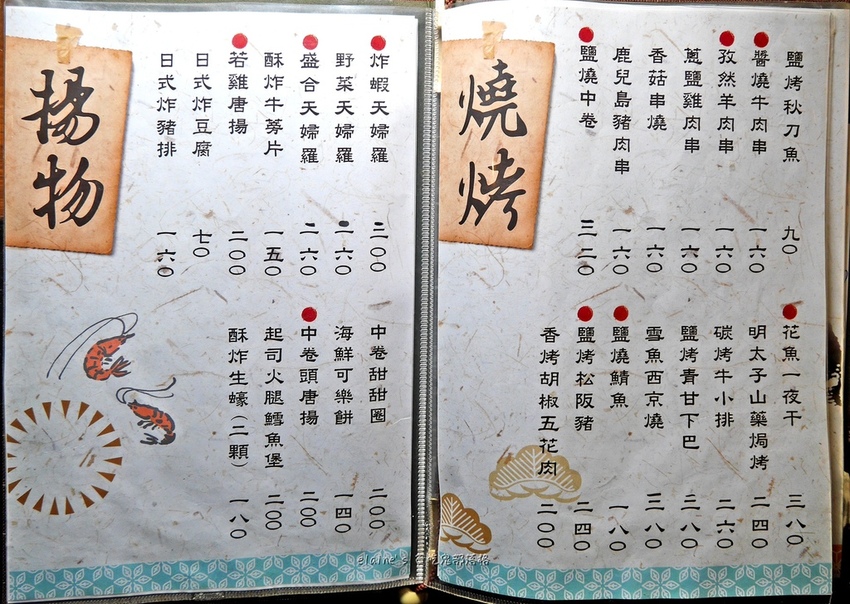 燒烤
鹽烤秋刀魚 九〇
醬燒牛肉串 一六〇
孜然羊肉串 一六〇
蔥鹽雞肉串 一六〇
香菇串燒 一六〇
鹿兒島豬肉串 一六〇
鹽燒中卷 三二〇
花魚一夜干 三八〇
明太子山藥焗烤 二四〇
碳烤牛小排 二六〇
鹽烤青甘下巴 二八〇
雪魚西京燒 三八〇
鹽燒鯖魚 一八〇
鹽烤松阪豬 二四〇
香烤胡椒五花肉 二〇〇
揚物
炸蝦天婦羅 二〇〇
野菜天婦羅 一六〇
盛合天婦羅 二六〇
酥炸牛蒡片 一五〇
若雞唐揚 二〇〇
日式炸豆腐 七〇
日式炸豬排 一六〇
中卷甜甜圈 二〇〇
海鮮可樂餅 一四〇
中卷頭唐揚 二〇〇
起司火腿鱈魚堡 二〇〇
酥炸生蠔（二顆） 一八〇
elaine's